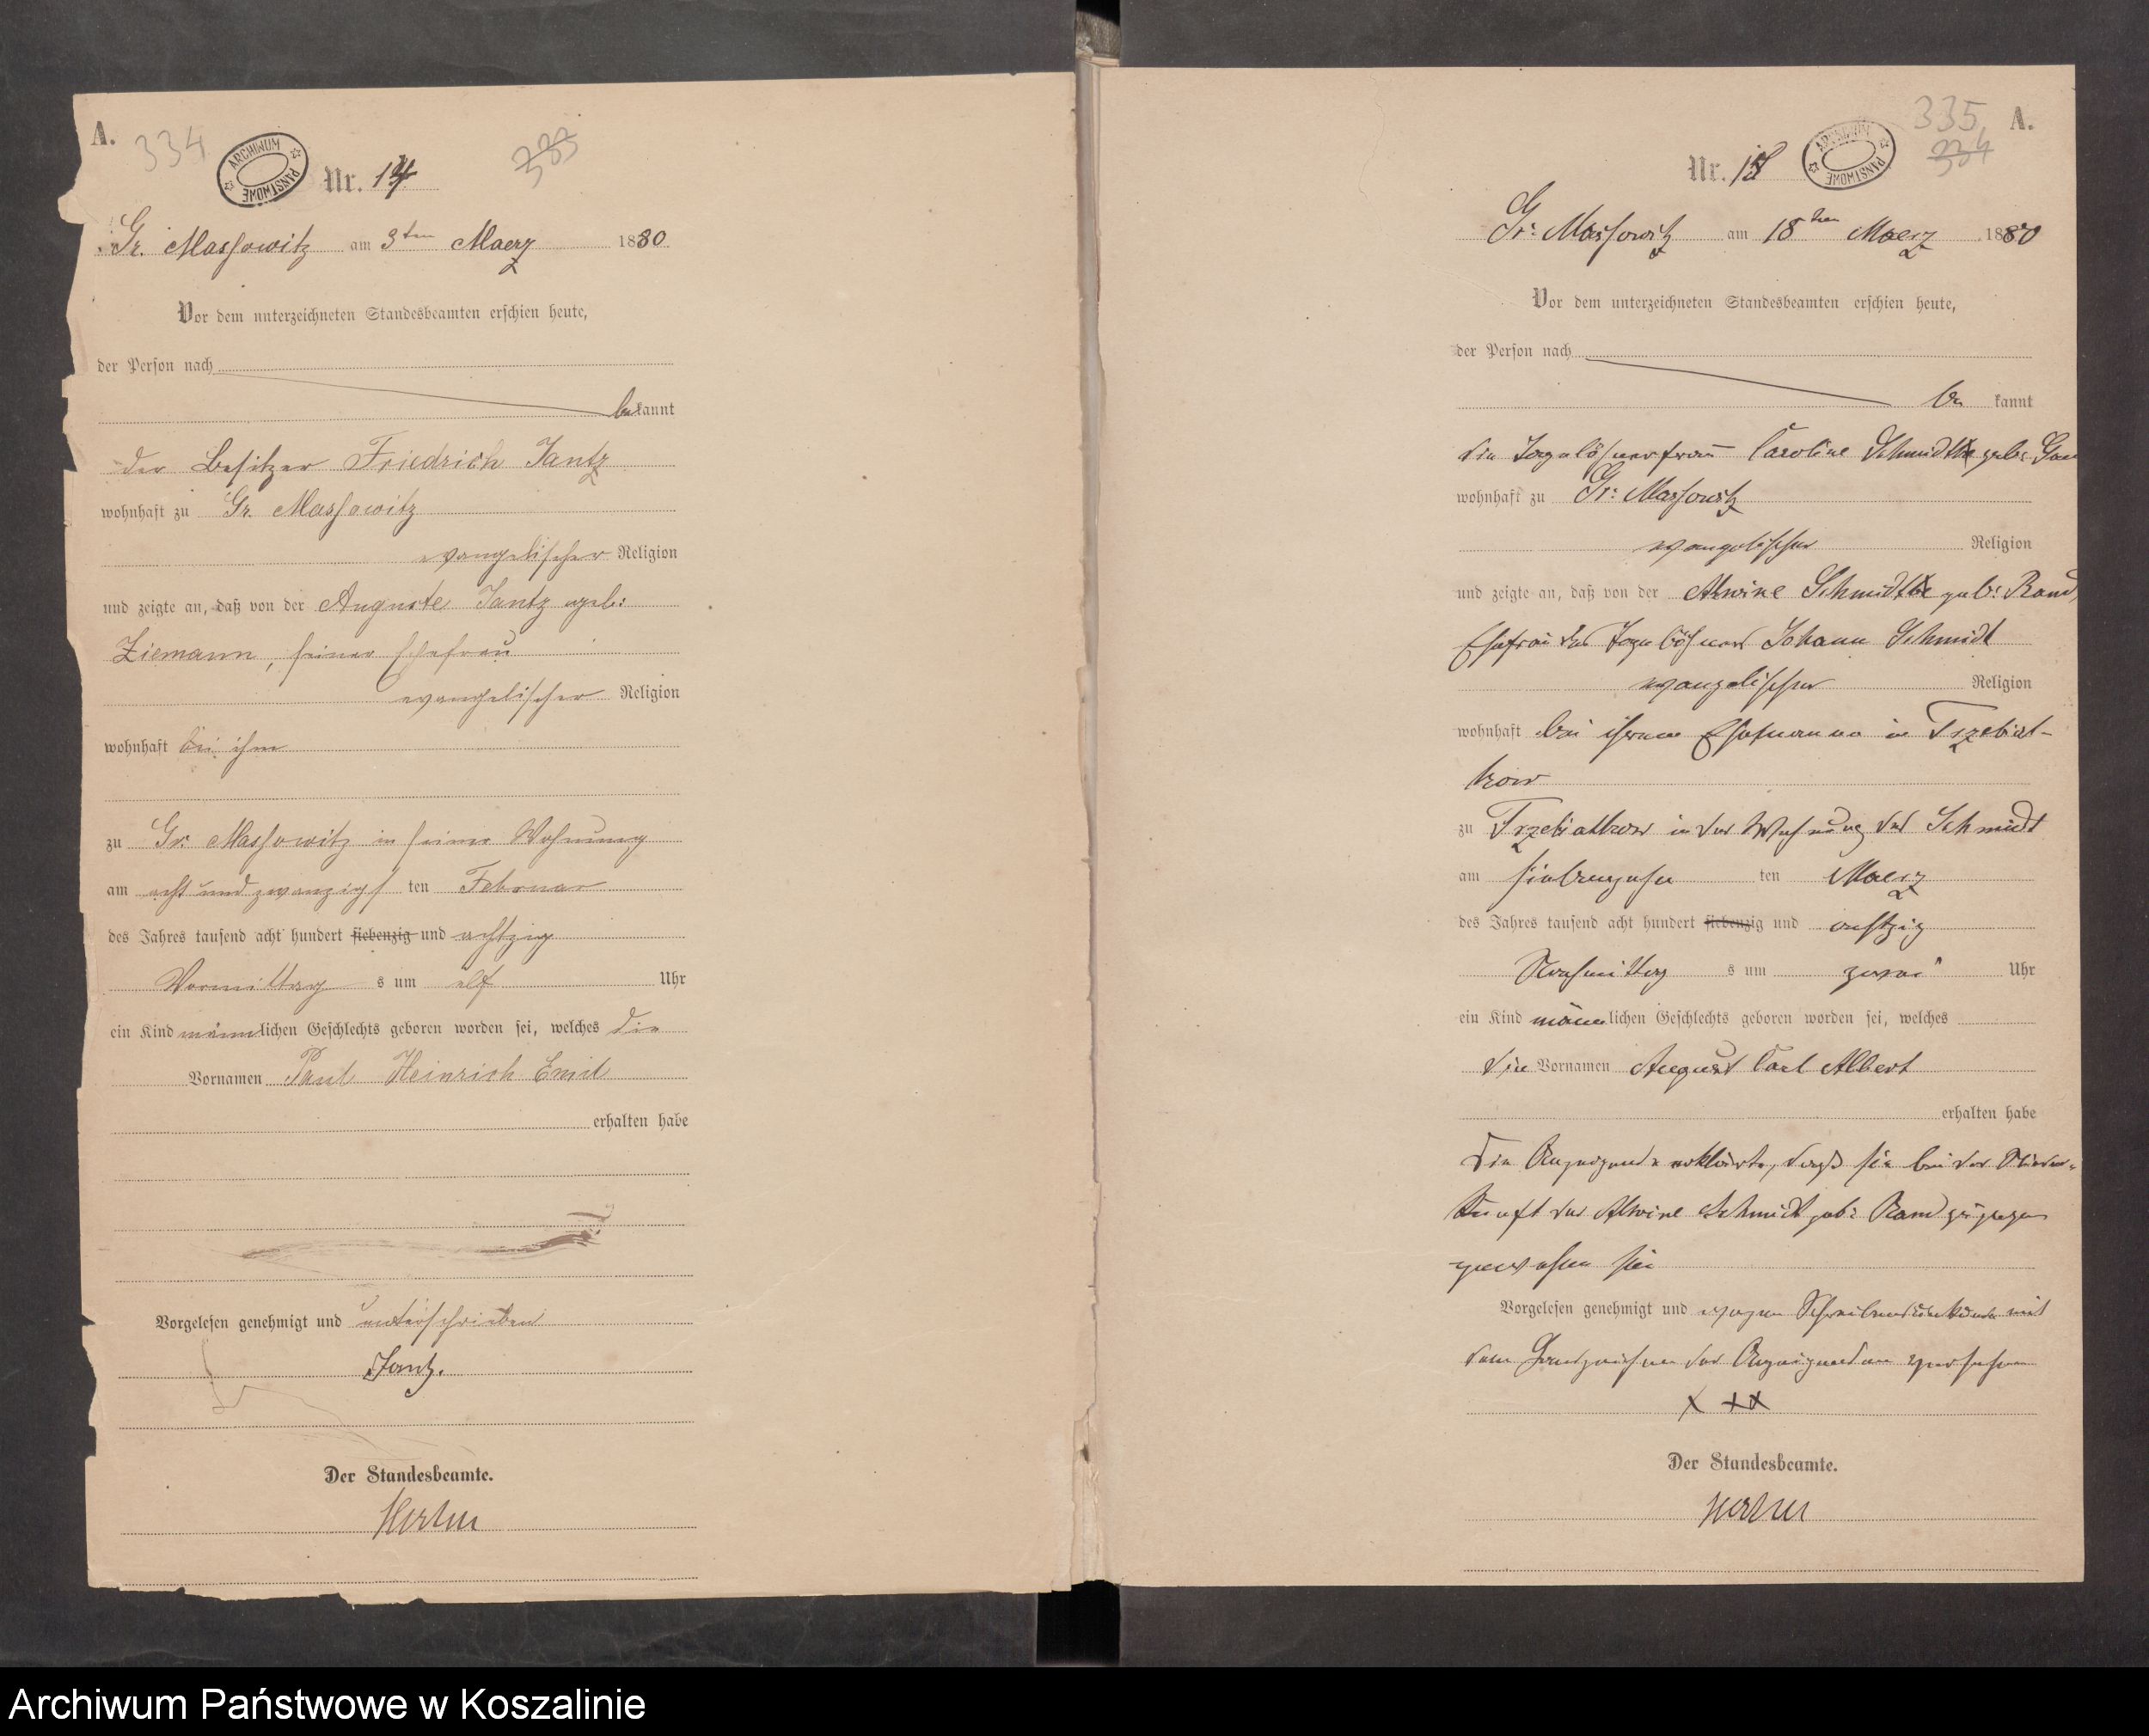 A.
334
ARCHIWUM PAŃSTWOWE
Nr. 14
333
Gr. Massowitz am 3ten Maerz 1880
Vor dem unterzeichneten Standesbeamten erschien heute,
der Person nach
bekannt
der Besitzer Friedrich Jantz
wohnhaft zu Gr. Massowitz
evangelischer Religion
und zeigte an, daß von der Auguste Jantz geb:
Ziemann, seiner Ehefrau
evangelischer Religion
wohnhaft bei ihm
zu Gr. Massowitz in seiner Wohnung
am acht und zwanzigsten Februar
des Jahres tausend acht hundert siebenzig und achtzig
Vormittags um elf Uhr
ein Kind männlichen Geschlechts geboren worden sei, welches die
Vornamen Paul Heinrich Emil
erhalten habe
Vorgelesen genehmigt und unterschrieben
Jantz.
Der Standesbeamte.
335
A.
334
ARCHIWUM PAŃSTWOWE
Nr.
Gr: Massowitz am 18ten Maerz 1880
Vor dem unterzeichneten Standesbeamten erschien heute,
der Person nach
be kannt
die Tagelöhnerfrau Caroline Schmidt geb:
wohnhaft zu Gr: Massowitz
evangelischer Religion
und zeigte an, daß von der Alwine Schmidt geb: Rand,
Ehefrau des Tagelöhners Johann Schmidt
evangelischer Religion
wohnhaft bei ihrem Ehemanne in Trzebiat-
kow
zu Trzebiatkow in der Wohnung des Schmidt
am siebenzehn ten Maerz
des Jahres tausend acht hundert siebenzig und achtzig
Nachmittags um zwei Uhr
ein Kind männlichen Geschlechts geboren worden sei, welches
die Vornamen August Carl Albert
erhalten habe
Die Anzeigende erklärte, daß sie bei der Nieder-
kunft der Alwine Schmidt geb: Rand zugegen
gewesen sei
Vorgelesen genehmigt und wegen Schreibensunkunde mit
dem Handzeichen der Anzeigenden versehen
X XX
Der Standesbeamte.
Archiwum Państwowe w Koszalinie